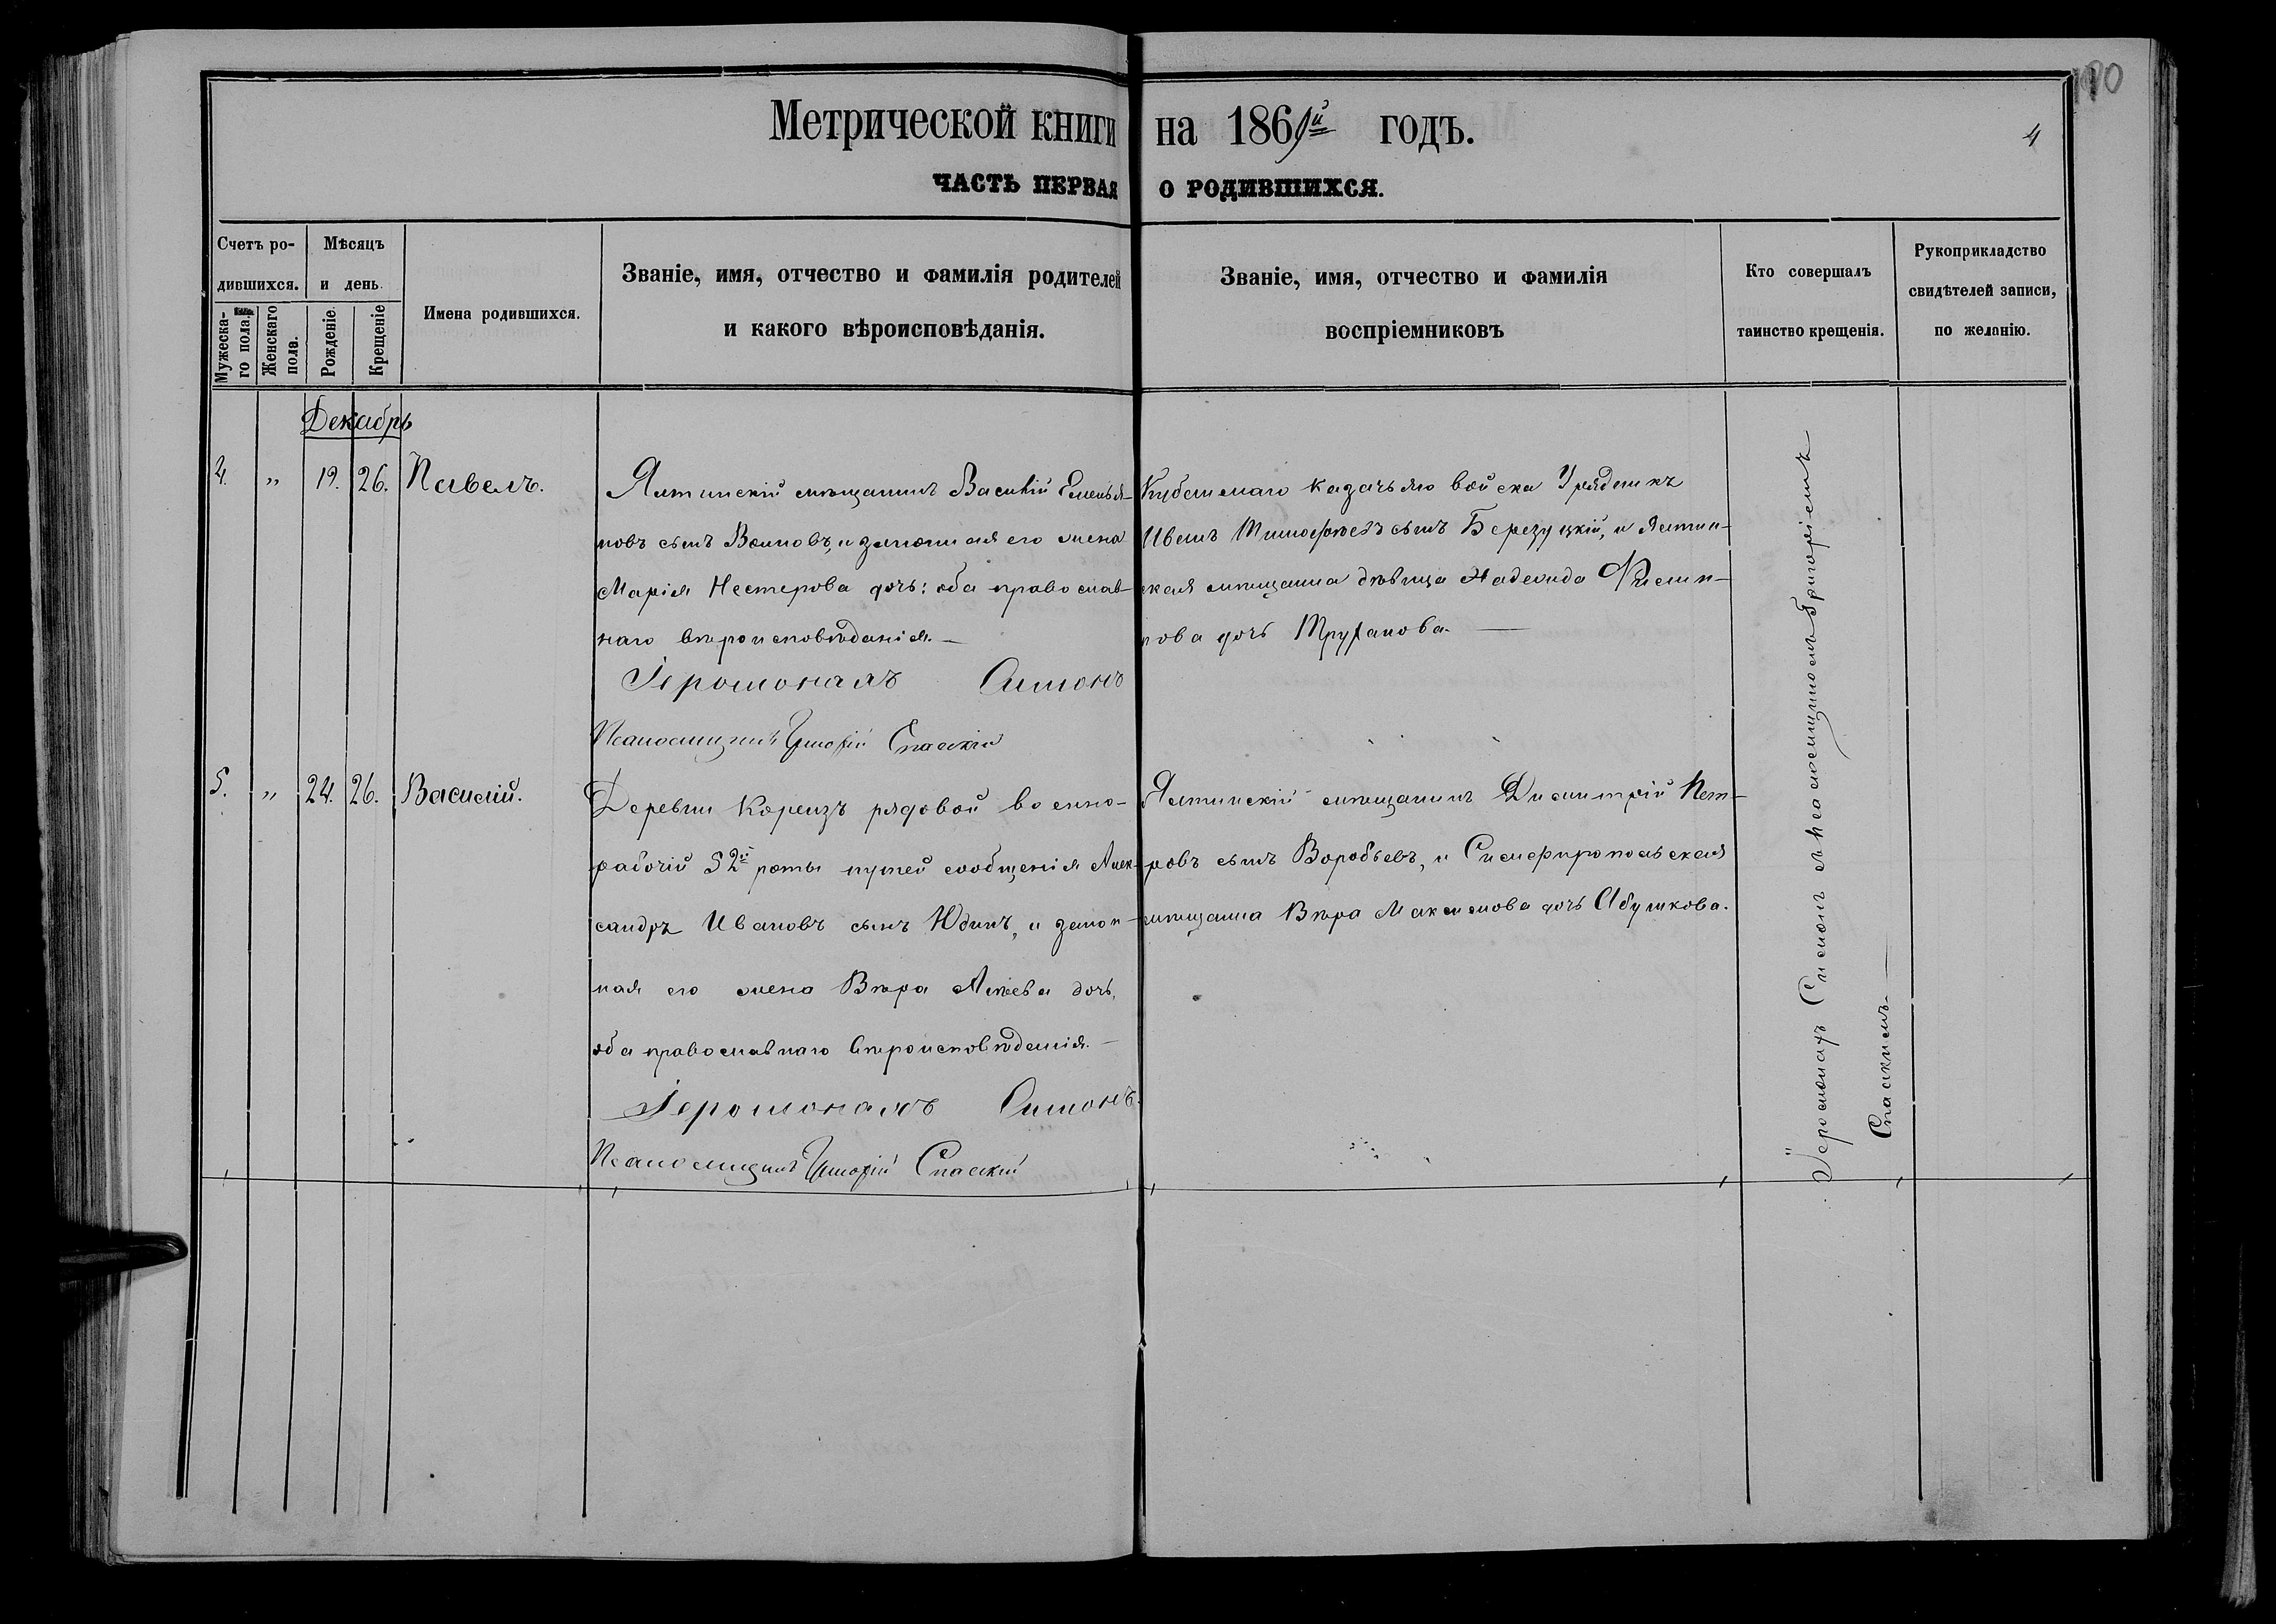 190
4
Метрической книги на 1869й годъ.
ЧАСТЬ ПЕРВАЯ О РОДИВШИХСЯ.
Счетъ ро-
дившихся.
Мужеска-
го пола.
Женскаго
пола.
Мѣсяцъ
и день.
Рожденіе.
Крещеніе
Имена родившихся.
Званіе, имя, отчество и фамилія родителей
и какого вѣроисповѣданія.
Званіе, имя, отчество и фамилія
воспріемниковъ
Кто совершалъ
таинство крещенія.
Рукоприкладство
свидѣтелей записи,
по желанію.
Декабрь
4. „ 19. 26. Павелъ.
Ялтинскій мѣщанинъ Василій Емелья-
новъ сынъ Воиновъ, и законная его жена
Марія Нестерова дочь: оба православ-
наго вѣроисповѣданія. —
Іеромонахъ Симонъ
Псаломщикъ Григорій Спаскій
Кубанскаго казачьяго войска Урядникъ
Иванъ Тимофѣевъ сынъ Березуцкій, и Ялтин-
ская мѣщанка дѣвица Надежда Филип-
пова дочь Труфанова. —
5. „ 24. 26. Василій.
Деревни Кореизъ рядовой военно-
рабочій 52й роты путей сообщенія Алек-
сандръ Ивановъ сынъ Юдинъ, и закон-
ная его жена Вѣра дочь,
оба православнаго вѣроисповѣданія. —
Іеромонахъ Симонъ.
Псаломщикъ Григорій Спаскій
Ялтинскій мѣщанинъ Димитрій Пет-
ровъ сынъ Воробьевъ, и Симферопольская
мѣщанка Вѣра Максимова дочь Абушкова.
Іеромонахъ Симонъ съ Псаломщикомъ Григоріемъ
Спаскимъ. —